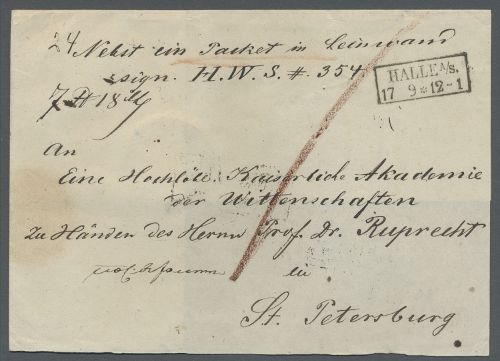 24 Nebst ein Packet in Leinwand
sign. H. W. S. # 354.
7 ℔ 18
HALLE A/S.
17 9 * 12-1
An
Eine Hochlöbl. Kaiserliche Akademie
der Wittenschaften
zu Händen des Herrn Prof. Dr. Ruprecht
in
St. Petersburg